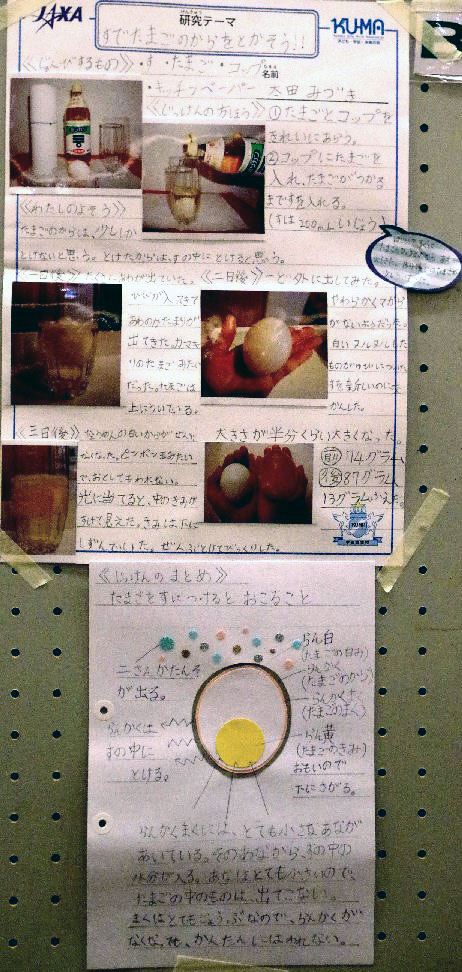 JAXA
研究テーマ
KU-MA
すでたまごのからをとかそう!!
《じゅんびするもの》・す・たまご・コップ
・キッチンペーパー
名前
本田 みづき
《じっけんのかほう》
①たまごとコップを
きれいにあらう。
②コップにたまごを
入れ、たまごがつかる
まですを入れる。
(すは200mLいじょう)
《わたしのよそう》
たまごのからは、少ししか
とけないと思う。とけたからは、すの中にとけると思う。
《一日後》
あわが出ていた。
あわのかたまりが
出てきた。カマキ
リのたまごみたい
だった。たまごは
上にういている。
《二日後》一ど外に出してみた。
やわらかくてから
がないみたいだった。
白いヌルヌルした
すを新しいのにこ
うかんした。
《三日後》
ピンポン玉みたい
で、おとしてもわれない。
光に当てると、中のきみが
すけて見えた。きみは下に
しずんでいた。ぜんぶとけてびっくりした。
大きさが半分くらい大きくなった。
前 74グラム
後 87グラム
13グラムふえた。
《じっけんのまとめ》
たまごをすにつけるとおこること
二さんかたんそ
が出る。
らんかくは
すの中に
とける。
らん白
(たまごの白み)
らんかく
(たまごのから)
らんかくまく
(たまごのまく)
らん黄
(たまごのきみ)
おもいので
下にさがる。
らんかくまくには、とても小さなあなが
あいている。そのあなから、すの中の
水分が入る。あなはとても小さいので、
たまごの中のものは、出てこない。
まくはとてもじょうぶなので、らんかくが
なくなっても、かんたんにはわれない。